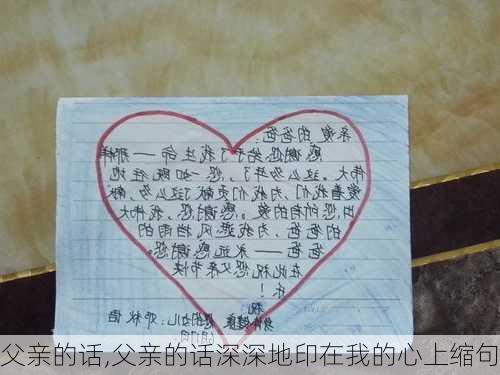 亲爱的爸爸:
感谢您给予了我生命——那样
伟大。这么多年了,您一如既往地
爱着我们,为我们贡献了这么多,献
出您所有的爱。感谢您,我伟大
的爸爸,为我遮风挡雨的
爸爸——永远感谢您。
在此祝您父亲节快
乐!
祝
身体健康
您的女儿:邓秋语
父亲的话,父亲的话深深地印在我的心上缩句